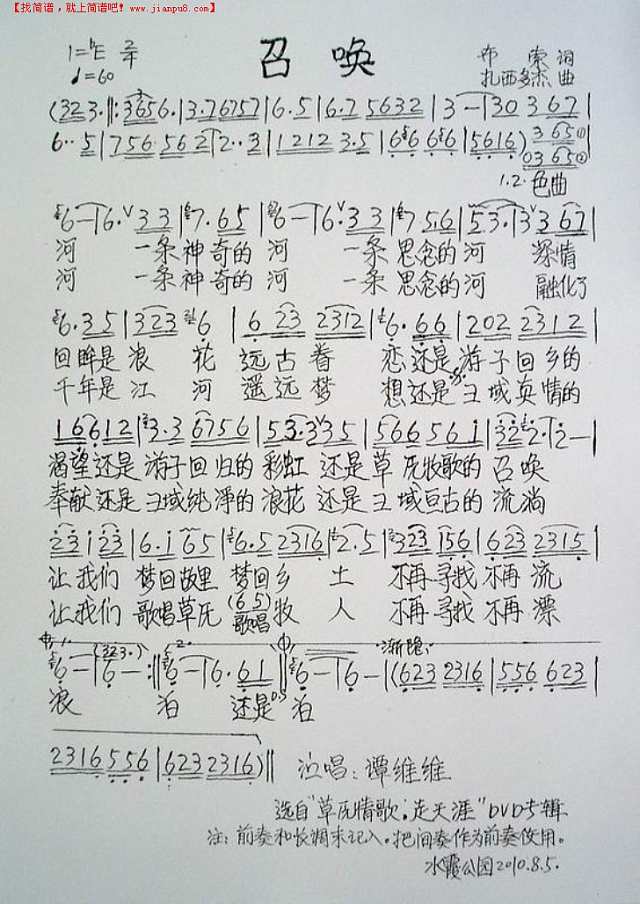 【找简谱，就上简谱吧! www.jianpu8.com】
召唤
1=♭E 2/4
♩=60
布 索 词
扎西多杰 曲
(323.‖:3656.|3.76757|6.5|6.75632|3—|30367|
6..5|756.562|2..3|12123.5|6666|5616)365①
0365②
1.2.色曲
6—|6.33|7.65|6—|6.33|7516|53.|3367|
河 一条神奇的河 一条思念的河 深情
河 一条神奇的河 一条思念的河 融化了
6.35|3236|6232312|6.66|2022312|
回眸是浪 花 远古眷 恋还是游子回乡的
千年是江 河 遥远梦 想还是 域真情的
16612|3.36756|53.335|566561|322.|2—|
渴望还是游子回归的彩虹 还是草原牧歌的召唤
奉献还是 域纯净的浪花 还是 域亘古的流淌
23123|6.165|6.52316|2.5|323156|6232315|
让我们 梦回故里 梦回乡 土 不再寻找不再流
让我们 歌唱草原(65)歌唱牧 人 不再寻找不再漂
1 (323.) 2 渐隐
6—|6—:‖6—|6.61‖6—|6—|(6232316|556623|
浪 泊 还是 泊
2316556|6232316)‖ 演唱：谭维维
选自"草原情歌.走天涯"DVD专辑
注：前奏和长调未记入。把间奏作为前奏使用。
水霞公园2010.8.5.